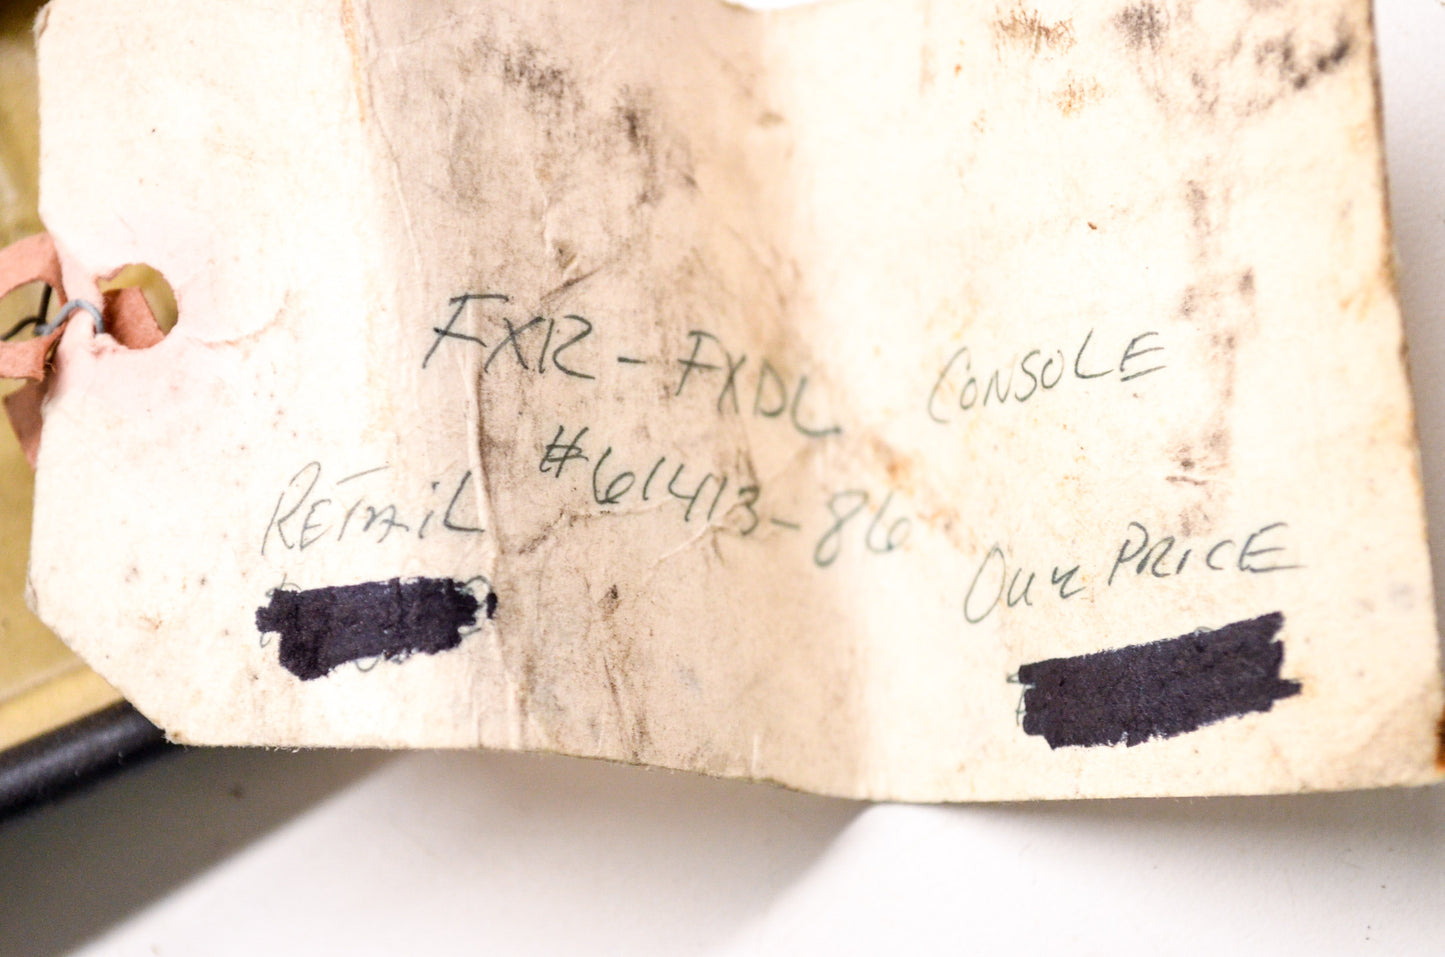 FXR - FXDL CONSOLE
#61413-86
RETAIL
OUR PRICE